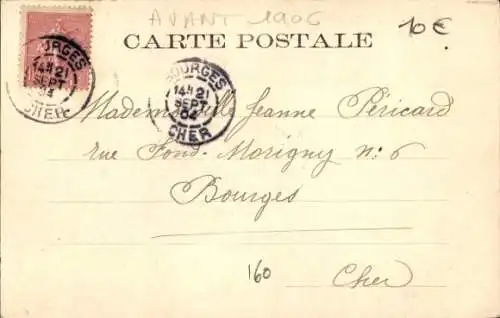 AVANT 1906
10€
CARTE POSTALE
BOURGES
14H 21
SEPT
04
CHER
BOURGES
14H 21
SEPT
04
CHER
Mademoiselle Jeanne Péricard
rue Fond-Morigny n: 6
Bourges
160
Cher